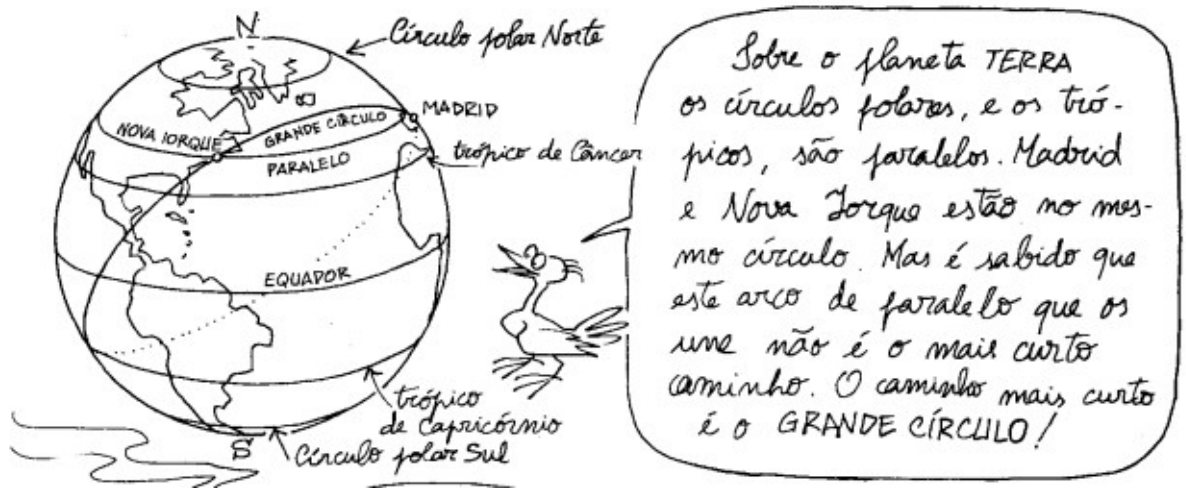 N
Círculo polar Norte
MADRID
NOVA IORQUE
GRANDE CÍRCULO
PARALELO
trópico de Câncer
EQUADOR
trópico
de Capricórnio
S
Círculo polar Sul
Sobre o planeta TERRA
os círculos polares, e os tró-
picos, são paralelos. Madrid
e Nova Iorque estão no mes-
mo círculo. Mas é sabido que
este arco de paralelo que os
une não é o mais curto
caminho. O caminho mais curto
é o GRANDE CÍRCULO!